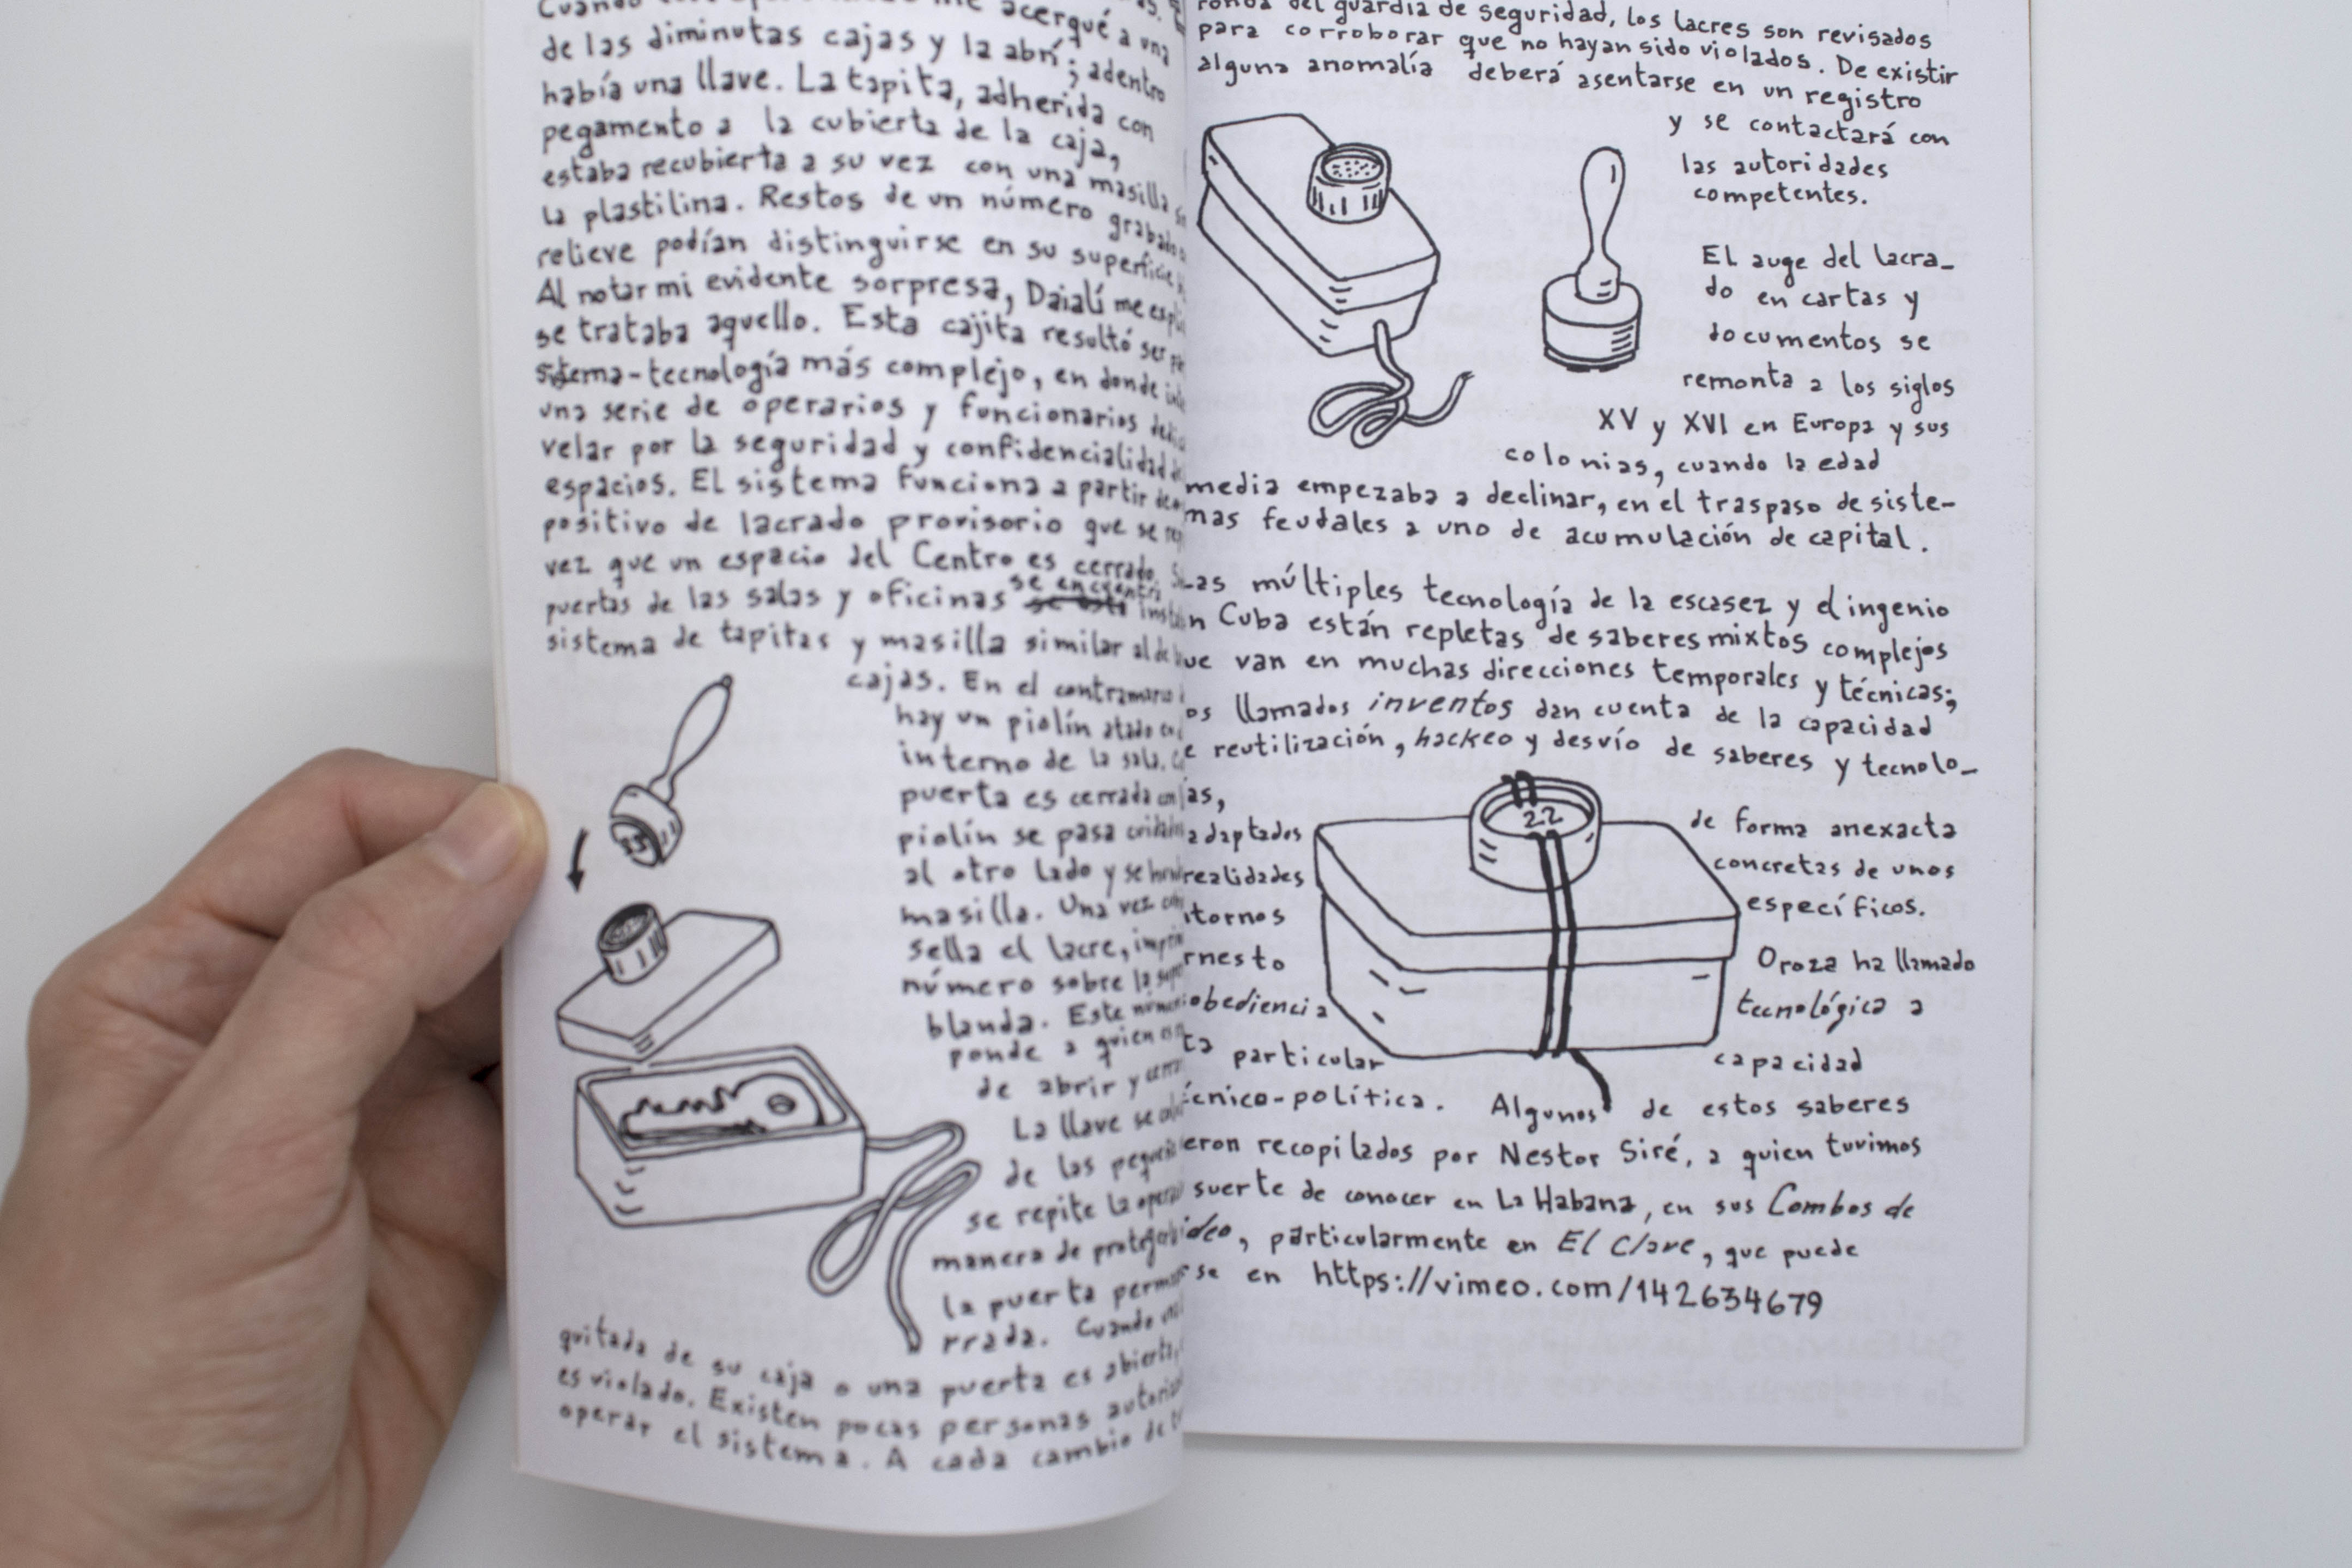 de las diminutas cajas y la abrí; adentro
había una llave. La tapita, adherida con
pegamento a la cubierta de la caja,
estaba recubierta a su vez con una masilla
la plastilina. Restos de un número grabado
relieve podían distinguirse en su superficie
Al notar mi evidente sorpresa, Daialí me
se trataba aquello. Esta cajita resultó ser
sistema-tecnología más complejo, en donde
una serie de operarios y funcionarios
velar por la seguridad y confidencialidad
espacios. El sistema funciona a partir de
positivo de lacrado provisorio que se
vez que un espacio del Centro es cerrado.
puertas de las salas y oficinas se encuentra
sistema de tapitas y masilla similar al de
cajas. En el contramarco
hay un piolín atado
interno de la sala.
puerta es cerrada con
piolín se pasa
al otro lado y se
masilla. Una vez
sella el lacre,
número sobre la
blanda. Este
ponde a quien
de abrir y
La llave se
de las
se repite la
manera de
la puerta
rrada. Cuando
quitada de su caja o una puerta es abierta,
es violado. Existen pocas personas
operar el sistema. A cada cambio de
35
ronda del guardia de seguridad, los lacres son revisados
para corroborar que no hayan sido violados. De existir
alguna anomalía deberá asentarse en un registro
y se contactará con
las autoridades
competentes.
El auge del lacra_
do en cartas y
documentos se
remonta a los siglos
XV y XVI en Europa y sus
colonias, cuando la edad
media empezaba a declinar, en el traspaso de siste-
mas feudales a uno de acumulación de capital.
Las múltiples tecnología de la escasez y el ingenio
n Cuba están repletas de saberes mixtos complejos
ue van en muchas direcciones temporales y técnicas;
os llamados inventos dan cuenta de la capacidad
e reutilización, hackeo y desvío de saberes y tecnolo_
as, de forma anexacta
adaptados concretas de unos
realidades específicos.
tornos
rnesto Oroza ha llamado
obediencia tecnológica a
ta particular capacidad
écnico-política. Algunos de estos saberes
eron recopilados por Nestor Siré, a quien tuvimos
suerte de conocer en La Habana, en sus Combos de
ideo, particularmente en El Clave, que puede
rse en https://vimeo.com/142634679
22